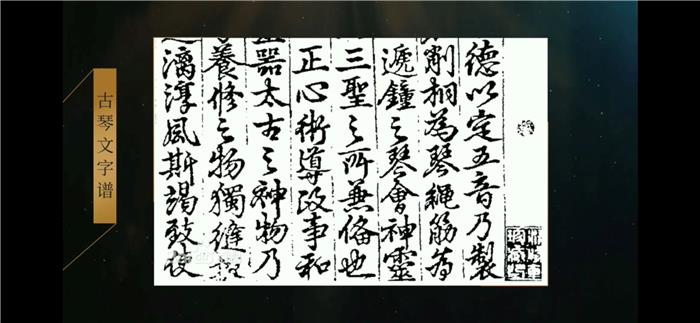 德以定五音乃製
削桐為琴繩筋為
遞鐘之琴會神靈
三聖之所兼俻也
正心術導政事和
器太古之神物乃
養修之物獨縫
漓淳風斯竭致使
古琴文字谱